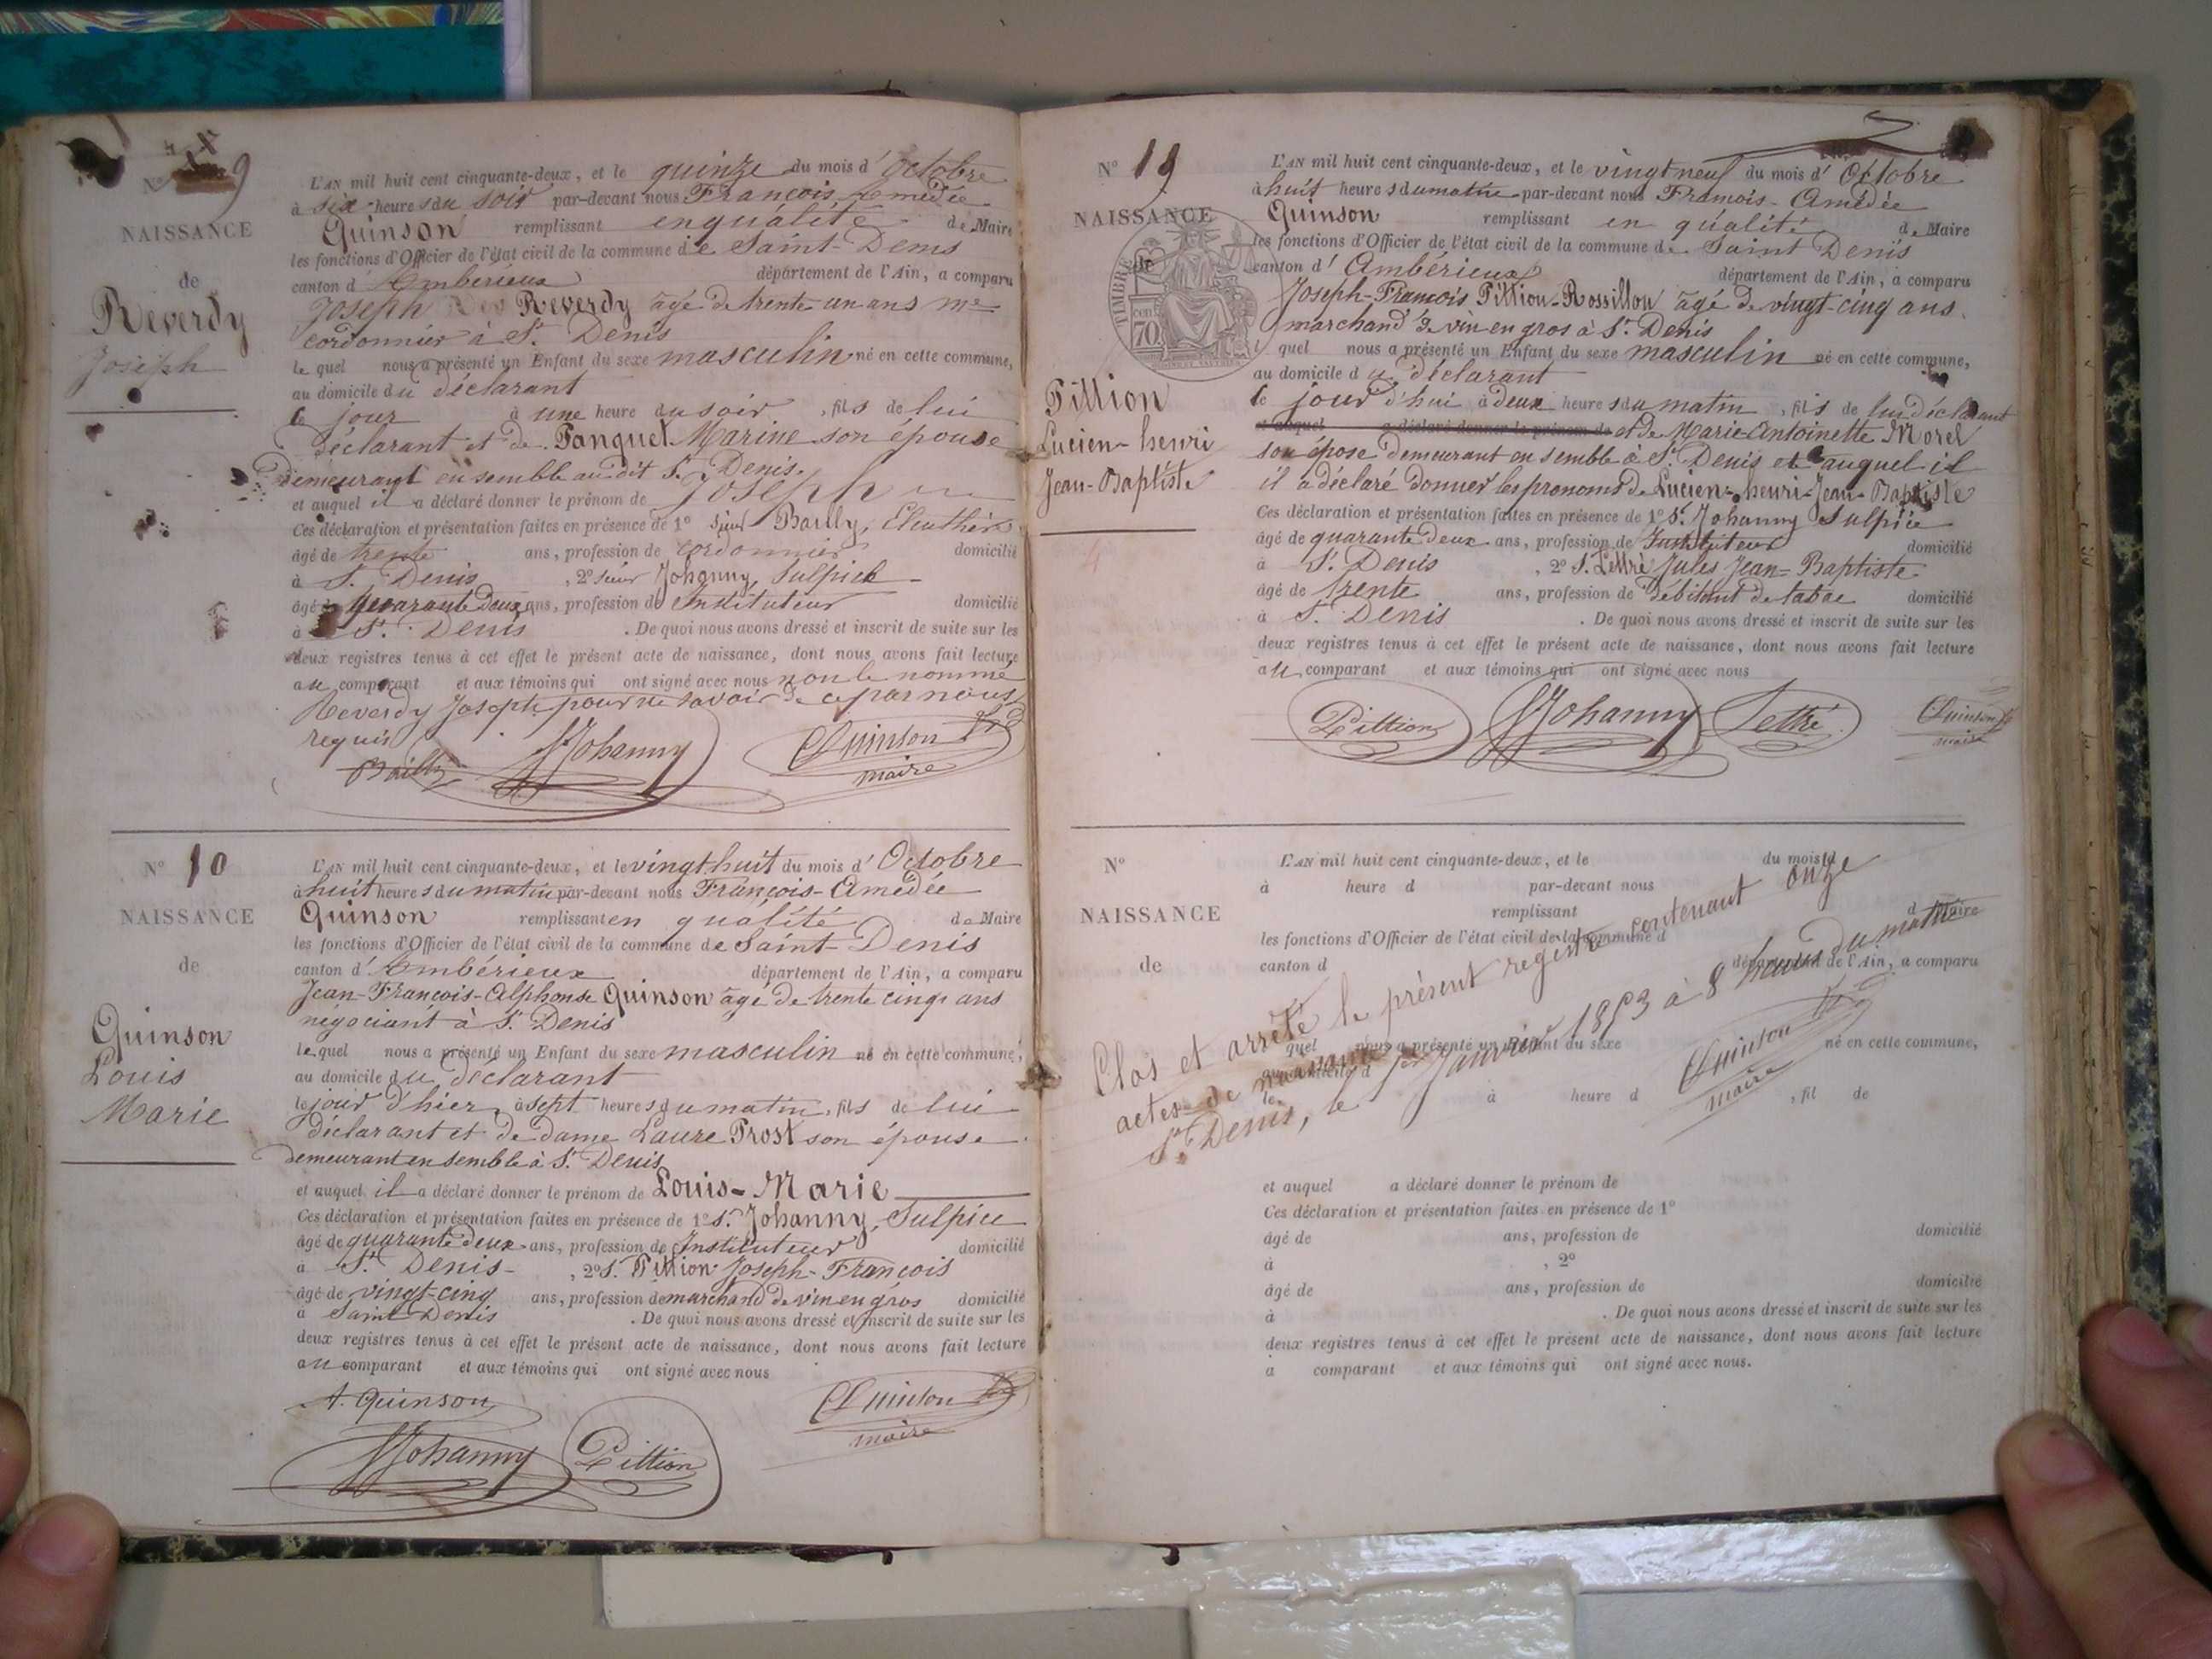 N° 9
NAISSANCE
de
Reverdy
Joseph
L'AN mil huit cent cinquante-deux, et le quinze du mois d'Octobre
à six heures du soir par-devant nous François Amédée
Quinson remplissant en qualité de Maire
les fonctions d'Officier de l'état civil de la commune de Saint-Denis
canton d'Ambérieux département de l'Ain, a comparu
Joseph Reverdy âgé de trente-un ans me
cordonnier à St. Denis
le quel nous a présenté un Enfant du sexe masculin né en cette commune,
au domicile du déclarant
le jour à une heure du soir, fils de lui
déclarant et de Panquet Marine son épouse
demeurant ensemble au dit St. Denis.
et auquel il a déclaré donner le prénom de Joseph
Ces déclaration et présentation faites en présence de 1° sieur Bailly, Eleuthère
âgé de trente ans, profession de cordonnier domicilié
à St. Denis, 2° sieur Johanny, Sulpice
âgé de quarante deux ans, profession de Instituteur domicilié
à St. Denis. De quoi nous avons dressé et inscrit de suite sur les
deux registres tenus à cet effet le présent acte de naissance, dont nous avons fait lecture
au comparant et aux témoins qui ont signé avec nous non le nommé
Reverdy Joseph pour ne savoir de ce par nous
requis
Bailly SJohanny Quinson
maire
N° 10
NAISSANCE
de
Quinson
Louis
Marie
L'AN mil huit cent cinquante-deux, et le vingt huit du mois d'Octobre
à huit heures du matin par-devant nous François-Amédée
Quinson remplissant en qualité de Maire
les fonctions d'Officier de l'état civil de la commune de Saint-Denis
canton d'Ambérieux département de l'Ain, a comparu
Jean-François-Alphonse Quinson âgé de trente cinq ans
négociant à St. Denis
le quel nous a présenté un Enfant du sexe masculin né en cette commune,
au domicile du déclarant
le jour d'hier, à sept heures du matin, fils de lui
déclarant et de dame Laure Prost son épouse
demeurant ensemble à St. Denis
et auquel il a déclaré donner le prénom de Louis-Marie
Ces déclaration et présentation faites en présence de 1° S. Johanny, Sulpice
âgé de quarante deux ans, profession de Instituteur domicilié
à St. Denis, 2° S. Pittion Joseph-François
âgé de vingt-cinq ans, profession de marchand de vin en gros domicilié
à Saint Denis. De quoi nous avons dressé et inscrit de suite sur les
deux registres tenus à cet effet le présent acte de naissance, dont nous avons fait lecture
au comparant et aux témoins qui ont signé avec nous
A. Quinson Quinson
maire
SJohanny Pittion
N° 19
NAISSANCE
de
TIMBRE
70
Pittion
Lucien-henri
Jean-Baptiste
L'AN mil huit cent cinquante-deux, et le vingt neuf du mois d'Octobre
à huit heures du matin par-devant nous François-Amédée
Quinson remplissant en qualité de Maire
les fonctions d'Officier de l'état civil de la commune de Saint Denis
canton d'Ambérieux département de l'Ain, a comparu
Joseph-François Pittion-Rossillon âgé de vingt-cinq ans.
marchand de vin en gros à St. Denis
quel nous a présenté un Enfant du sexe masculin né en cette commune,
au domicile du déclarant
le jour d'hui à deux heures du matin, fils de lui déclarant
et auquel a déclaré donner le prénom de et de Marie-Antoinette Morel
son épose demeurant ensemble à St. Denis et auquel il
il a déclaré donner les pronoms de Lucien-henri-Jean-Baptiste
Ces déclaration et présentation faites en présence de 1° S. Johanny Sulpice
âgé de quarante deux ans, profession de Instituteur domicilié
à St. Denis, 2° S. Lettré Jules Jean-Baptiste
âgé de trente ans, profession de débitant de tabac domicilié
à St. Denis. De quoi nous avons dressé et inscrit de suite sur les
deux registres tenus à cet effet le présent acte de naissance, dont nous avons fait lecture
au comparant et aux témoins qui ont signé avec nous
Pittion SJohanny Lettré Quinson
maire
N°
NAISSANCE
de
L'AN mil huit cent cinquante-deux, et le du mois d
à heure d par-devant nous
remplissant d Maire
les fonctions d'Officier de l'état civil de la commune d
canton d département de l'Ain, a comparu
quel nous a présenté un Enfant du sexe né en cette commune,
au domicile d
le à heure d, fil de
Clos et arrêté le présent registre contenant onze
actes de naissance
St. Denis, le 1er Janvier 1853 à 8 heures du matin
Quinson
maire
et auquel a déclaré donner le prénom de
Ces déclaration et présentation faites en présence de 1°
âgé de ans, profession de domicilié
à , 2°
âgé de ans, profession de domicilié
à . De quoi nous avons dressé et inscrit de suite sur les
deux registres tenus à cet effet le présent acte de naissance, dont nous avons fait lecture
a comparant et aux témoins qui ont signé avec nous.